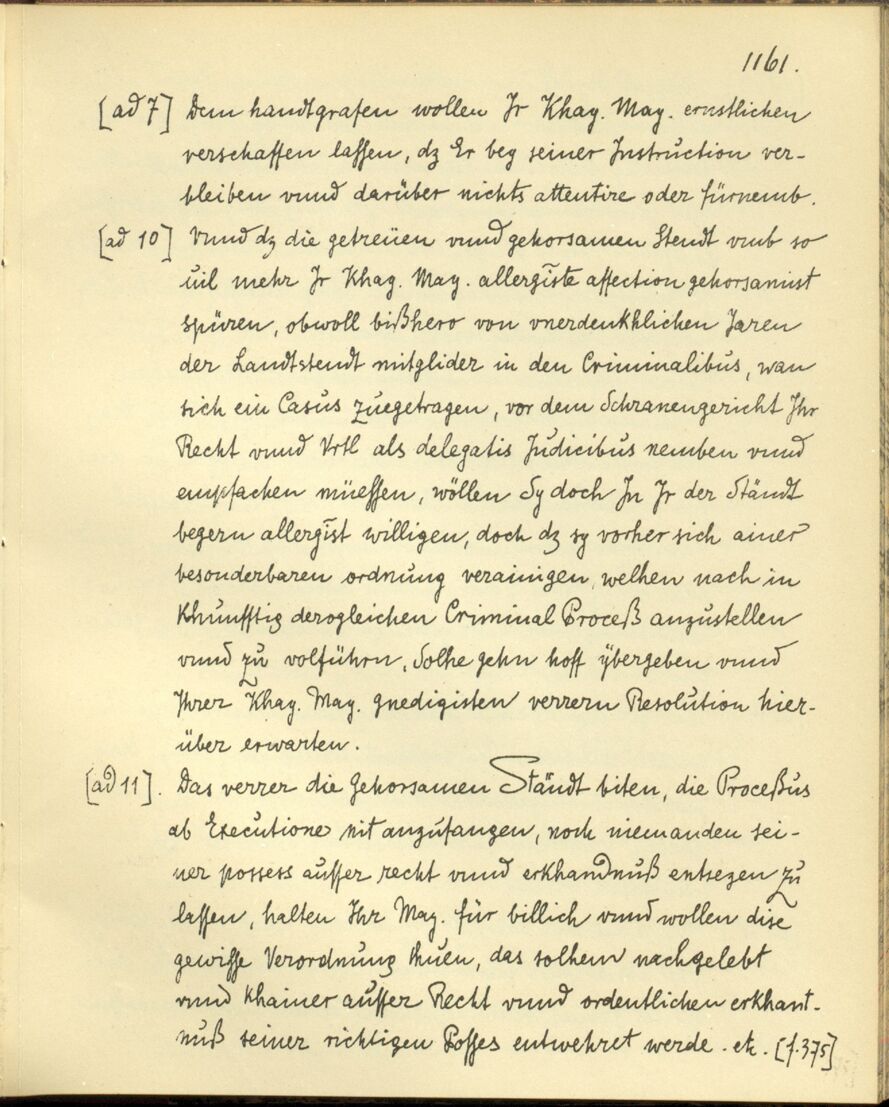 1161.
[ad 7] Dem handtgrafen wollen Jr Khay. May. ernstlichen
verschaffen lassen, dz Er bey seiner Instruction ver-
bleiben vnnd darüber nichts attentire oder fürnemb.
[ad 10] Vnnd dz die getreüen vnnd gehorsamen Stendt vmb so
uil mehr Jr Khay. May. allergiste affection gehorsamist
spüren, obwoll bißhero von vnerdenkhlichen Jaren
der Landtstendt mitglider in den Criminalibus, wan
sich ein Casus zuegetragen, vor dem Schranengericht Ihr
Recht vnnd Vrtl als delegatis Judicibus nemben vnnd
empfachen müessen, wöllen Sy doch In Jr der Ständt
begern allergist willigen, doch dz sy vorher sich ainer
besonderbaren ordnung verainigen, welhen nach in
Khunfftig derogleichen Criminal Proceß anzustellen
vnnd zu volführn, Solhe gehn hoff ÿbergeben vnnd
Ihrer Khay. May. gnedigisten verrern Resolution hier-
über erwarten.
[ad 11]. Das verrer die gehorsamen Ständt biten, die Proceßus
ab Executione nit anzufangen, noch niemanden sei-
ner possess ausser recht vnnd erkhandnuß entsezen zu
lassen, halten Ihr May. für billich vnnd wollen dise
gewisse Verordnung thuen, das solhem nachgelebt
vnnd Khainer ausser Recht vnnd ordentlichen erkhant-
nuß seiner richtigen Posses entwehret werde. etc. [f. 375]